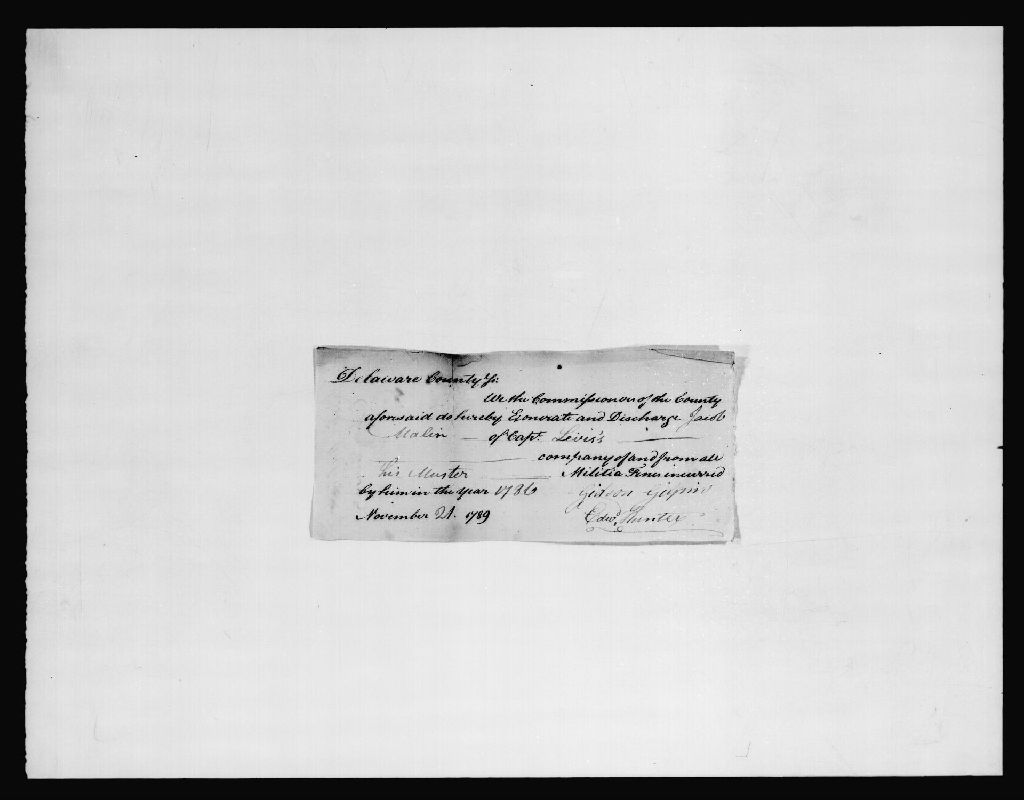 Delaware County Ss:
We the Commissioners of the County
aforesaid do hereby Exonerate and Discharge Jacob
Malin of Capt. Levis's
company of and from all
his Muster Militia Fines incurred
by him in the Year 1786
November 21. 1789
Gideon Gilpin
Edwd. Hunter